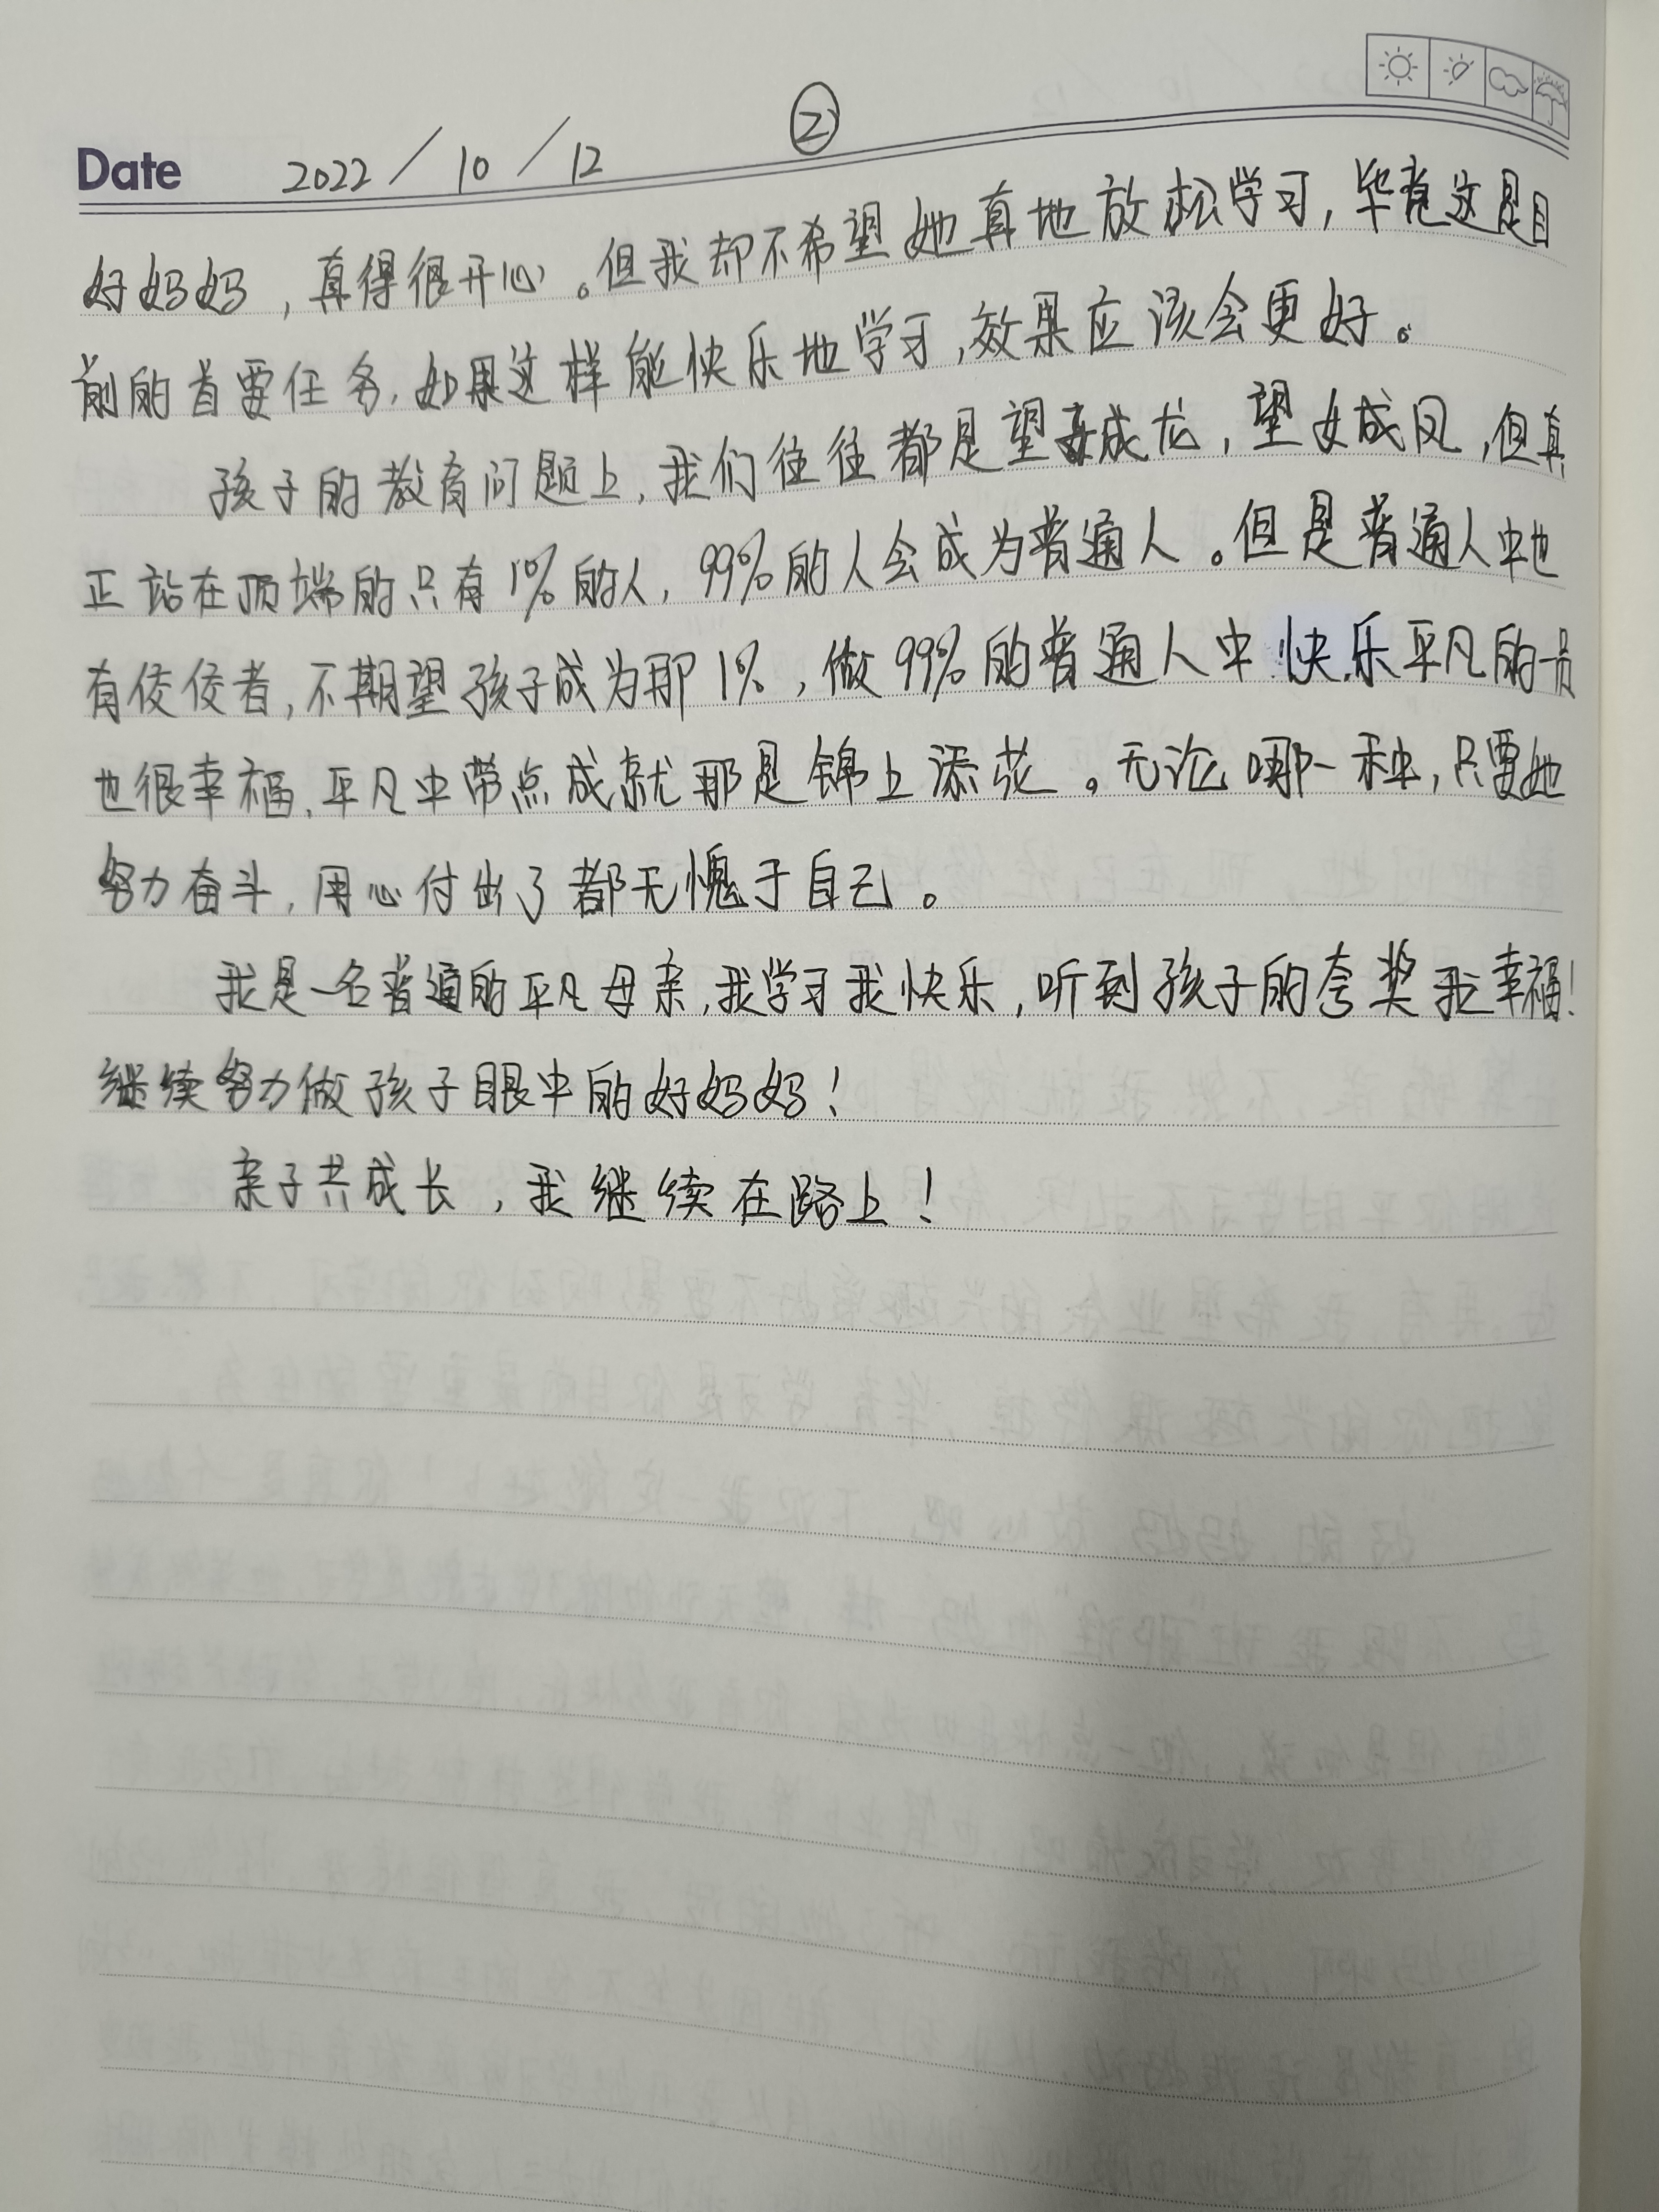 ②
Date 2022/10/12
好妈妈，真得很开心。但我却不希望她真地放松学习，毕竟这是目
前的首要任务，如果这样能快乐地学习，效果应该会更好。
孩子的教育问题上，我们往往都是望成龙，望女成凤，但真
正站在顶端的只有1%的人，99%的人会成为普通人。但是普通人中也
有佼佼者，不期望孩子成为那1%，做99%的普通人中快乐平凡的一员
也很幸福，平凡中带点成就那是锦上添花。无论哪一种，只要她
努力奋斗，用心付出了都无愧于自己。
我是一名普通的平凡母亲，我学习我快乐，听到孩子的夸奖我幸福！
继续努力做孩子眼中的好妈妈！
亲子共成长，我继续在路上！